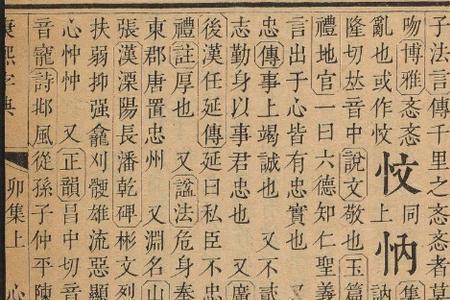 子法言傳千里之忞忞者莫
吻博雅忞忞
亂也或作忟
忟
同
上
集
訥
隆切𠀤音中說文敬也玉篇
禮地官一曰六德知仁聖義
言出于心皆有忠實也
忠傳事上竭誠也 又不貳
志勤身以事君忠也 又廣
後漢任延傳延曰私臣不忠
禮註厚也 又諡法危身奉
東郡唐置忠州 又淵名山
張漢溧陽長潘乾碑彬文烈
扶弱抑强龕刈骾雄流惡顯
心忡忡 又正韻昌中切音
音寵詩邶風從孫子仲平陳
康熙字典 卯集上 心